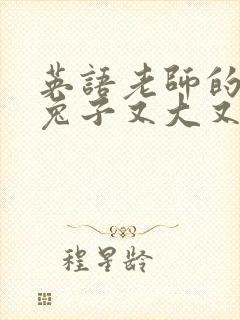 英語老師的
兔子又大又
程星龄